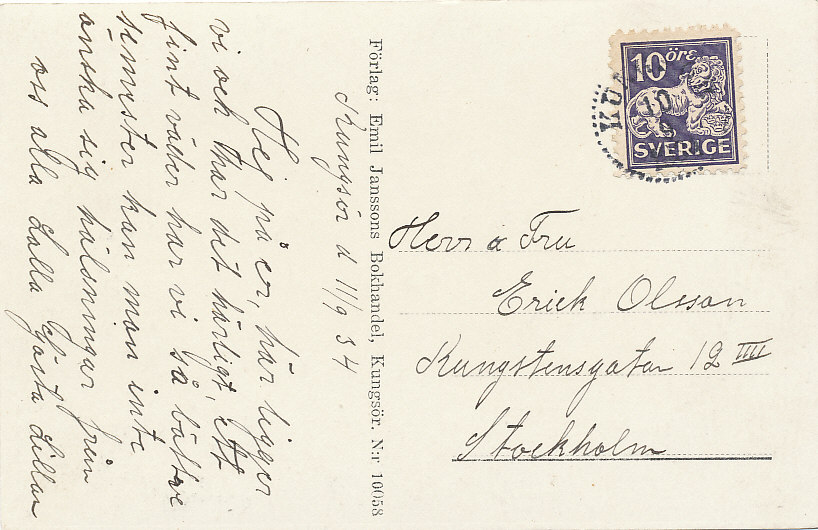 Kungsör d 11/9 34
Hej på er, här ligger
vi och har det härligt, ett
fint väder har vi så bättre
semester kan man inte
önska sig hälsningar från
oss alla Lalla Gösta Lillan
Förlag: Emil Janssons Bokhandel, Kungsör. N:r 10058
10 öre
SVERIGE
10
9
Herr o Fru
Erick Olsson
Kungstensgatan 12 IIII
Stockholm